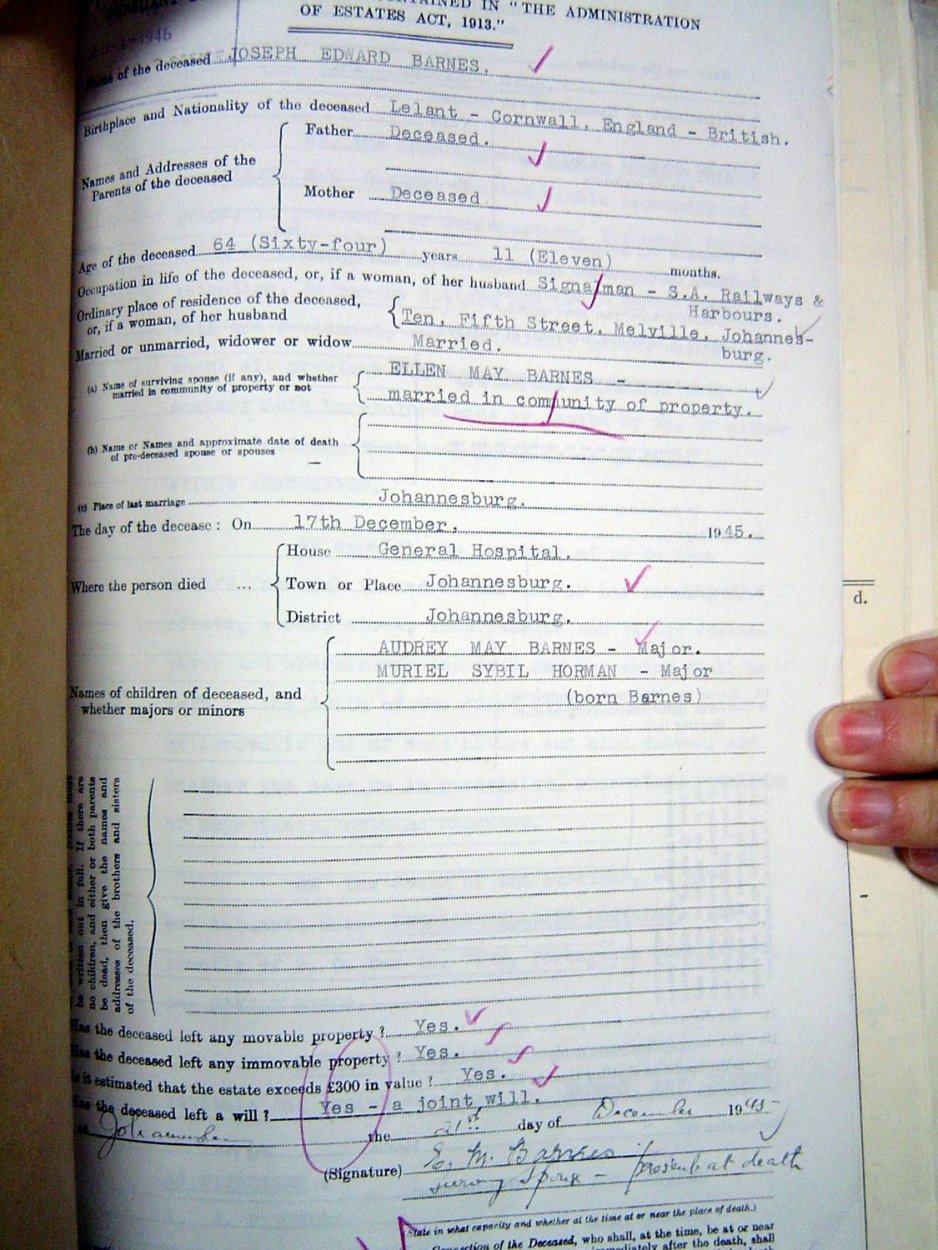 CONTAINED IN "THE ADMINISTRATION
OF ESTATES ACT, 1913."
-1-1946
Name of the deceased JOSEPH EDWARD BARNES.
Birthplace and Nationality of the deceased Lelant - Cornwall, England - British.
Names and Addresses of the Parents of the deceased
Father Deceased.
Mother Deceased
Age of the deceased 64 (Sixty-four) years 11 (Eleven) months.
Occupation in life of the deceased, or, if a woman, of her husband Signalman - S.A. Railways &
Harbours.
Ordinary place of residence of the deceased,
or, if a woman, of her husband
Ten, Fifth Street, Melville, Johannes-
burg.
Married or unmarried, widower or widow Married.
(a) Name of surviving spouse (if any), and whether
married in community of property or not
ELLEN MAY BARNES -
married in community of property.
(b) Name or Names and approximate date of death
of pre-deceased spouse or spouses
(c) Place of last marriage Johannesburg.
The day of the decease : On 17th December, 1945.
Where the person died ...
House General Hospital.
Town or Place Johannesburg.
District Johannesburg.
Names of children of deceased, and
whether majors or minors
AUDREY MAY BARNES - Major.
MURIEL SYBIL HORMAN - Major
(born Barnes)
be written out in full. If there are
no children, and either or both parents
be dead, then give the names and
addresses of the brothers and sisters
of the deceased.
Has the deceased left any movable property ? Yes.
Has the deceased left any immovable property ? Yes.
Is it estimated that the estate exceeds £300 in value ? Yes.
Has the deceased left a will ? Yes - a joint will.
Johannesburg the 21st day of December 1945
(Signature) E. M. Barnes
surving Spouse - present at death
(State in what capacity and whether at the time at or near the place of death.)
Connection of the Deceased, who shall, at the time, be at or near
immediately after the death, shall
d.